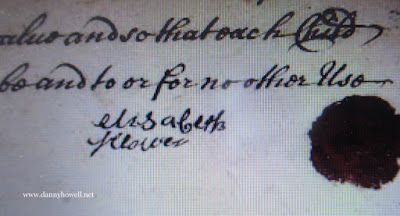 alue and so that each Child
be and to or for no other Use
elisabeth
flower
www.dannyhowell.net